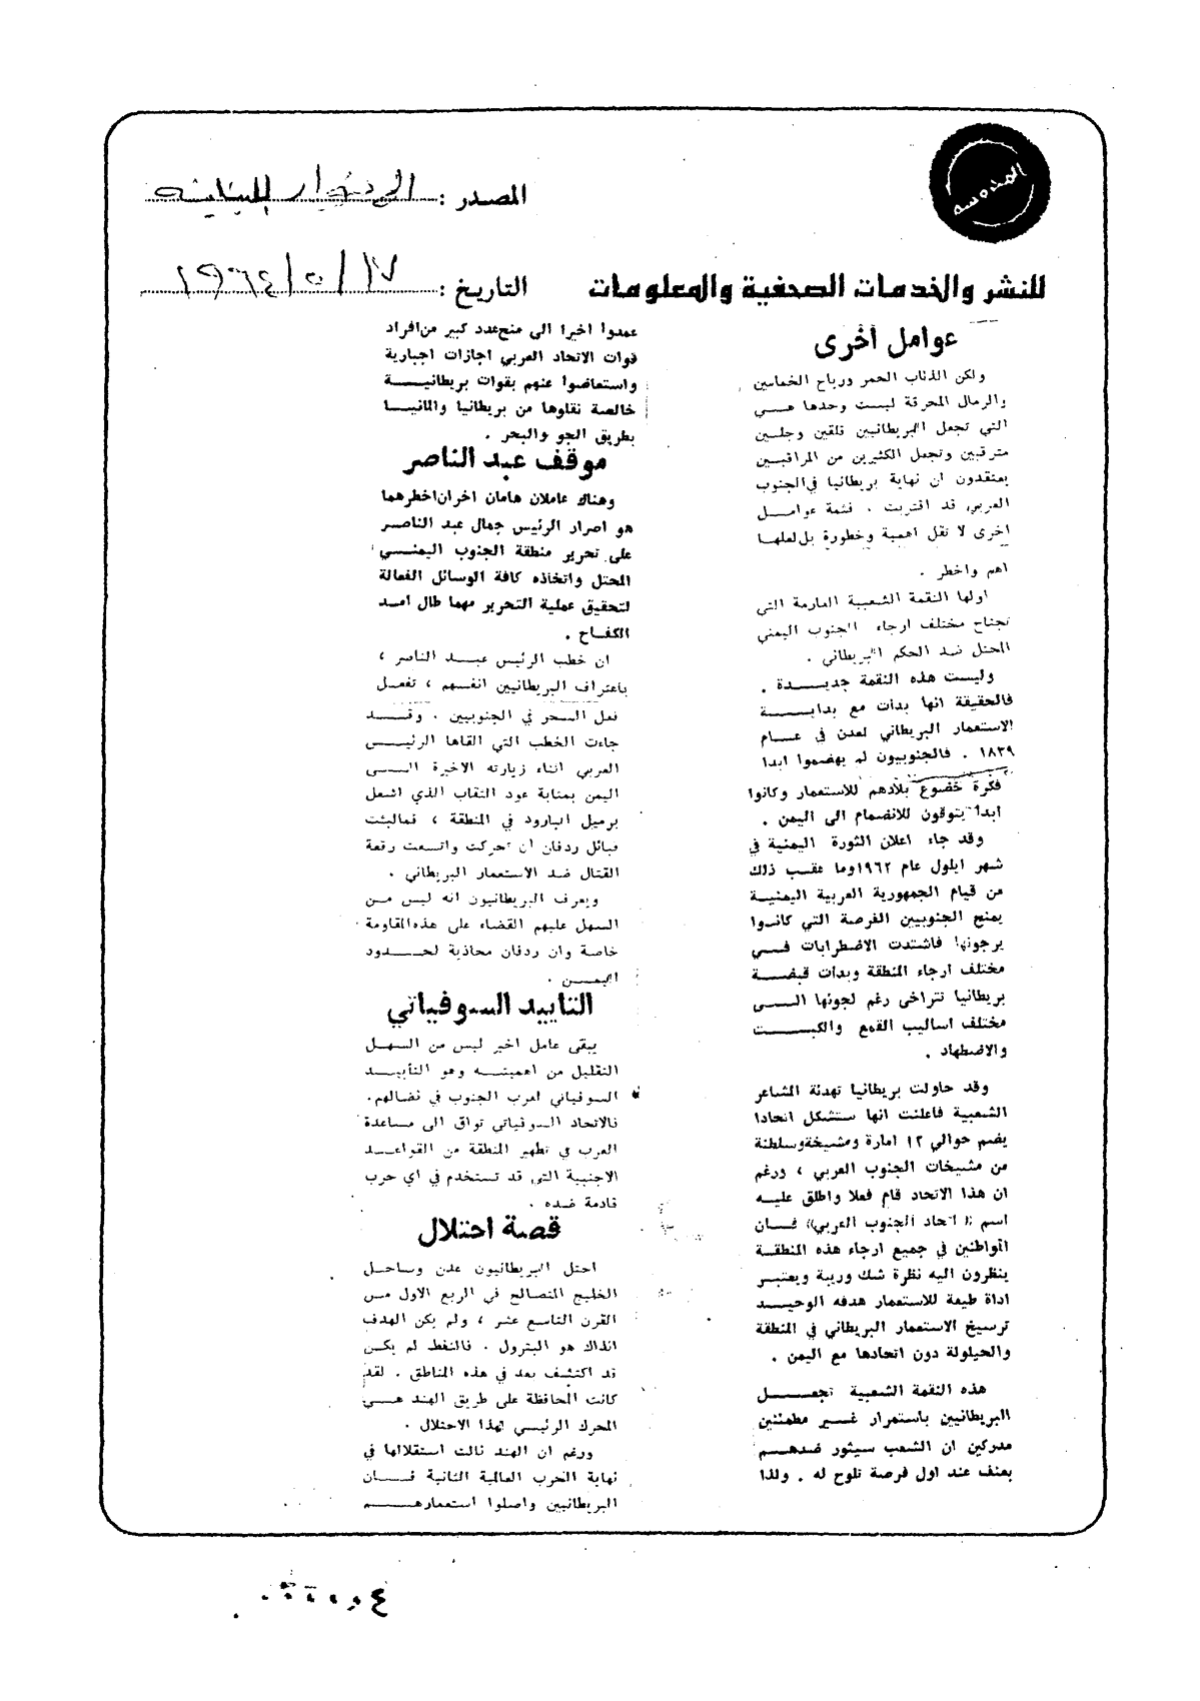 المدوسه
المصدر : الاخبار اللبنانية
للنشر والخدمات الصحفية والمعلومات
التاريخ : ١٧ / ٥ / ١٩٦٤
عوامل أخرى
ولكن الذئاب الحمر ورياح الخماسين
والرمال المحرقة ليست وحدها هــي
التي تجعل البريطانيين قلقين وجلــين
مترقبين وتجعل الكثيرين من المراقبــين
يعتقدون ان نهاية بريطانيا في الجنوب
العربي قد اقتربت . فثمة عوامــل
اخرى لا تقل اهمية وخطورة بل لعلهــا
اهم واخطر .
اولها النقمة الشعبية العارمة التي
تجتاح مختلف ارجاء الجنوب اليمني
المحتل ضد الحكم البريطاني .
وليست هذه النقمة جديــدة .
فالحقيقة انها بدأت مع بدايــة
الاستعمار البريطاني لعدن في عــام
١٨٣٩ . فالجنوبيون لم يهضموا ابدا
فكرة خضوع بلادهم للاستعمار وكانوا
ابدا يتوقون للانضمام الى اليمن .
وقد جاء اعلان الثورة اليمنية في
شهر ايلول عام ١٩٦٢ وما عقب ذلك
من قيام الجمهورية العربية اليمنيــة
يمنح الجنوبيين الفرصة التي كانــوا
يرجونها فاشتدت الاضطرابات فــي
مختلف ارجاء المنطقة وبدأت قبضــة
بريطانيا تتراخى رغم لجوئها الــى
مختلف اساليب القمع والكبــت
والاضطهاد .
وقد حاولت بريطانيا تهدئة المشاعر
الشعبية فاعلنت انها ستشكل اتحادا
يضم حوالي ١٢ امارة ومشيخة وسلطنة
من مشيخات الجنوب العربي ، ورغم
ان هذا الاتحاد قام فعلا واطلق عليــه
اسم « اتحاد الجنوب العربي» فــان
المواطنين في جميع ارجاء هذه المنطقــة
ينظرون اليه نظرة شك وريبة ويعتبــر
اداة طيعة للاستعمار هدفه الوحيــد
ترسيخ الاستعمار البريطاني في المنطقة
والحيلولة دون اتحادها مع اليمن .
هذه النقمة الشعبية تجعــل
البريطانيين باستمرار غــير مطمئنين
مدركين ان الشعب سيثور ضدهــم
بعنف عند اول فرصة تلوح له . ولذا
عمدوا اخيرا الى منح عدد كبير من افراد
قوات الاتحاد العربي اجازات اجبارية
واستعاضوا عنهم بقوات بريطانيــة
خالصة نقلوها من بريطانيا والمانيــا
بطريق الجو والبحر .
موقف عبد الناصر
وهناك عاملان هامان اخران اخطرهما
هو اصرار الرئيس جمال عبد الناصــر
على تحرير منطقة الجنوب اليمنــي
المحتل واتخاذه كافة الوسائل الفعالة
لتحقيق عملية التحرير مهما طال امــد
الكفــاح .
ان خطب الرئيس عبــد الناصر ،
باعتراف البريطانيين انفسهم ، تفعــل
فعل السحر في الجنوبيين . وقــد
جاءت الخطب التي القاها الرئيــس
العربي اثناء زيارته الاخيرة الــى
اليمن بمثابة عود الثقاب الذي اشعل
برميل البارود في المنطقة ، فما لبثت
قبائل ردفان ان تحركت واتسعت رقعة
القتال ضد الاستعمار البريطاني .
ويعرف البريطانيون انه ليس مــن
السهل عليهم القضاء على هذه المقاومة
خاصة وان ردفان محاذية لحــدود
اليمــن .
التاييد السوفياتي
يبقى عامل اخير ليس من الســهل
التقليل من اهميتــه وهو التأييــد
السوفياتي لعرب الجنوب في نضالهم.
فالاتحاد السوفياتي تواق الى مساعدة
العرب في تطهير المنطقة من القواعــد
الاجنبية التي قد تستخدم في اي حرب
قادمة ضده .
قصة احتلال
احتل البريطانيون عدن وساحــل
الخليج المتصالح في الربع الاول مــن
القرن التاسع عشر ، ولم يكن الهدف
انذاك هو البترول . فالنفط لم يكــن
قد اكتشف بعد في هذه المناطق . لقد
كانت المحافظة على طريق الهند هــي
المحرك الرئيسي لهذا الاحتلال .
ورغم ان الهند نالت استقلالها في
نهاية الحرب العالمية الثانية فــان
البريطانيين واصلوا استعمارهــم